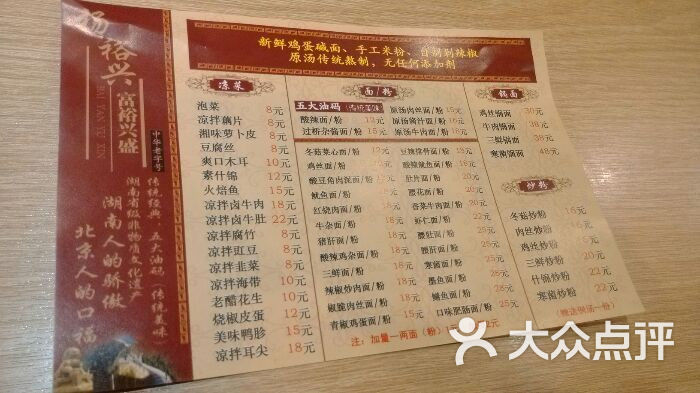 杨裕兴
富裕兴盛
中华老字号
传统经典 五大油码(传统美味
湖南省级非物质文化遗产
湖南人的骄傲
北京人的口福
新鲜鸡蛋碱面、手工米粉、自制剁辣椒
原汤传统熬制,无任何添加剂
凉菜
泡菜 8元
凉拌藕片 8元
湘味萝卜皮 8元
豆腐丝 8元
爽口木耳 10元
素什锦 12元
火焙鱼 15元
凉拌卤牛肉 18元
凉拌卤牛肚 22元
凉拌腐竹 8元
凉拌豇豆 8元
凉拌韭菜 8元
凉拌海带 10元
老醋花生 10元
烧椒皮蛋 12元
美味鸭胗 15元
凉拌耳尖 18元
面/粉
五大油码(传统美味
酸辣面/粉 12元
过桥杂酱面/粉 15元
原汤肉丝面/粉 15元
原汤酱汁面/粉 16元
原汤牛肉面/粉 18元
冬菇菜心面/粉
鸡丝面/粉
酸豆角肉泥面/粉
鱿鱼面/粉
红烧肉面/粉
牛杂面/粉
猪肝面/粉
酸辣鸡杂面/粉
三鲜面/粉
辣椒炒肉面/粉
椒脆肉丝面/粉
青椒鸡蛋面/粉
豆辣排骨面/粉
肚片面/粉
腰花面/粉
香菜牛肉面/粉
虾仁面/粉
腰肚面/粉
腰肝面/粉 25元
寒菌面/粉 25元
墨鱼面/粉 28元
鳝鱼面/粉 25元
口味肥肠面/粉 25元
注:加量一两面(粉)
锅面
鸡丝锅面 30元
牛肉锅面 38元
三鲜锅面 38元
寒菌锅面 48元
炒粉
冬菇炒粉 16元
肉丝炒粉 16元
鸡丝炒粉
三鲜炒粉 20元
什锦炒粉 22元
寒菌炒粉 22元
(赠送例汤一份)
大众点评